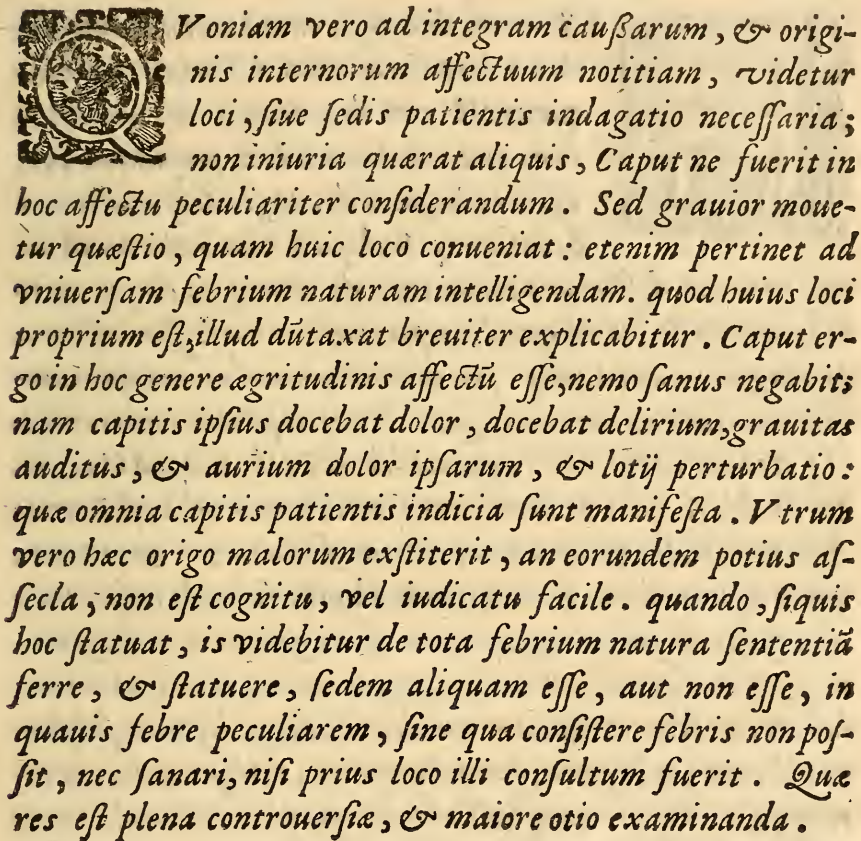 QVoniam vero ad integram cauſſarum, & origi-
nis internorum affectuum notitiam, videtur
loci, ſiue ſedis patientis indagatio neceſſaria;
non iniuria quærat aliquis, Caput ne fuerit in
hoc affectu peculiariter conſiderandum. Sed grauior moue-
tur quæſtio, quam huic loco conueniat: etenim pertinet ad
vniuerſam febrium naturam intelligendam. quod huius loci
proprium eſt, illud dūtaxat breuiter explicabitur. Caput er-
go in hoc genere ægritudinis affectū eſſe, nemo ſanus negabit;
nam capitis ipſius docebat dolor, docebat delirium, grauitas
auditus, & aurium dolor ipſarum, & lotij perturbatio:
quæ omnia capitis patientis indicia ſunt manifeſta. Vtrum
vero hæc origo malorum exſtiterit, an eorundem potius aſ-
ſecla, non eſt cognitu, vel iudicatu facile. quando, ſiquis
hoc ſtatuat, is videbitur de tota febrium natura ſententiā
ferre, & ſtatuere, ſedem aliquam eſſe, aut non eſſe, in
quauis febre peculiarem, ſine qua conſiſtere febris non poſ-
ſit, nec ſanari, niſi prius loco illi conſultum fuerit. Quæ
res eſt plena controuerſiæ, & maiore otio examinanda.